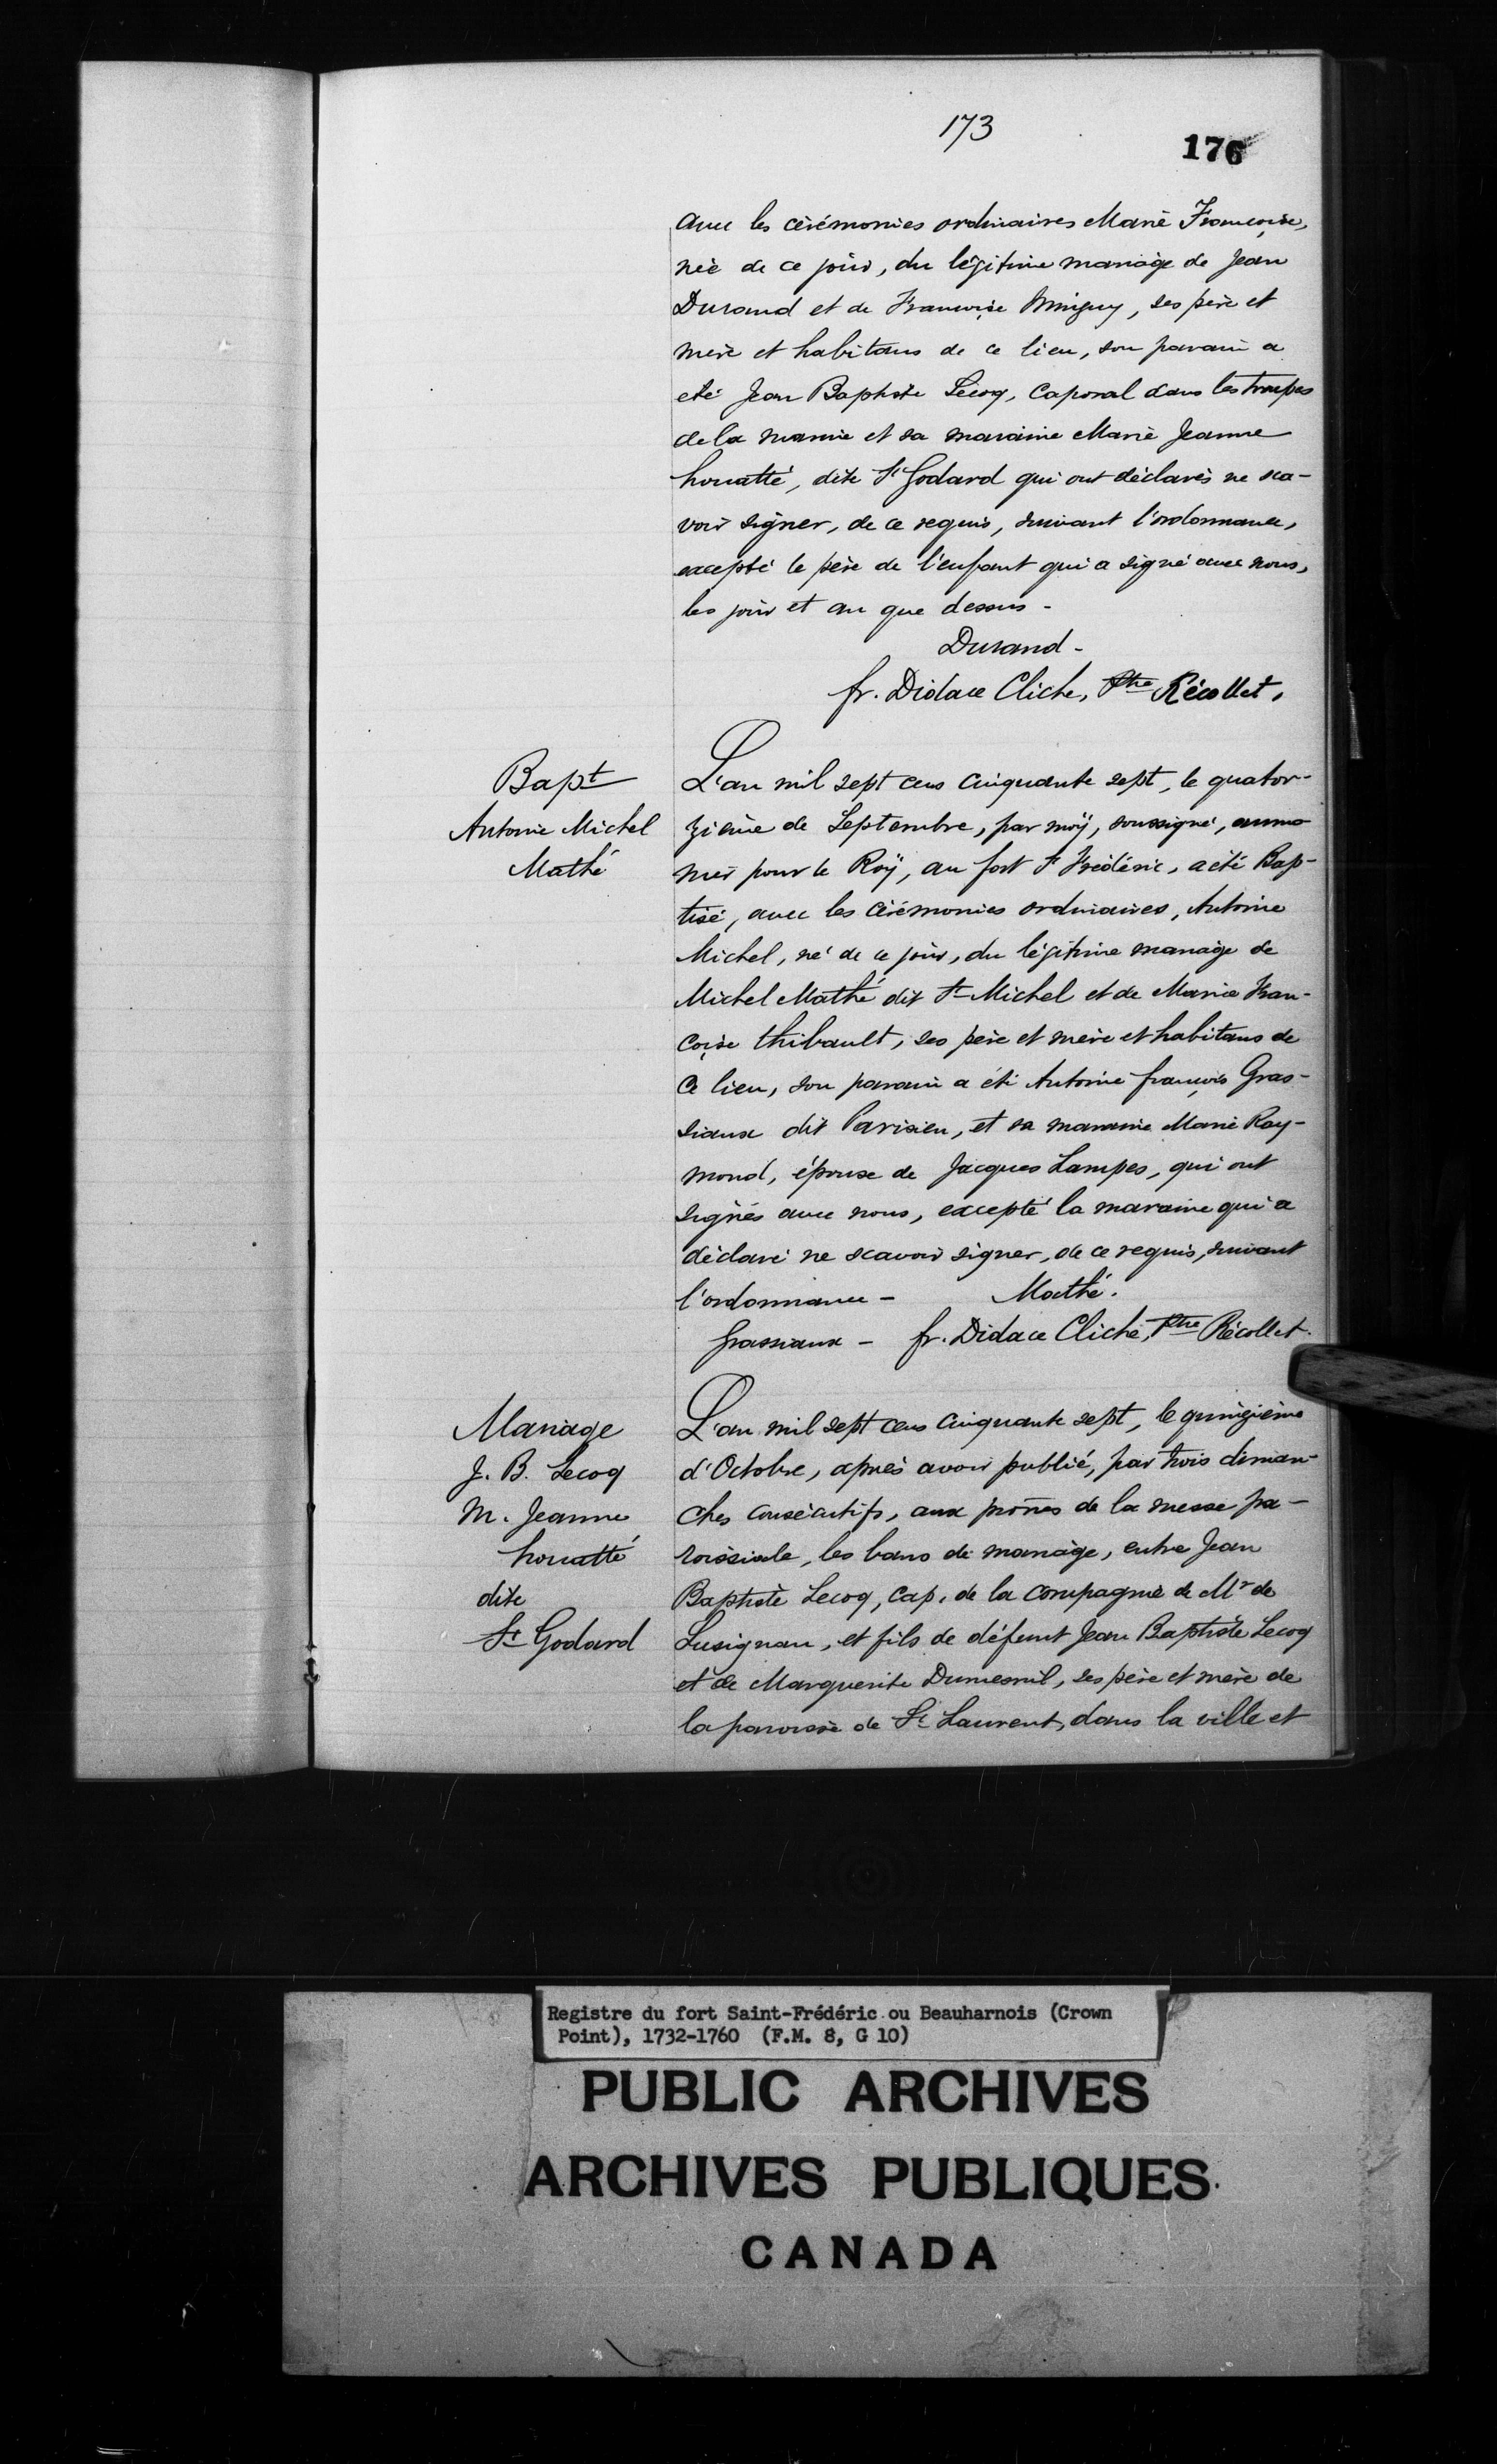 173
176
avec les cérémonies ordinaires Marie Francoise,
née de ce jour, du légitime mariage de Jean
Durand et de Francoise Minguy, ses père et
mère et habitans de ce lieu, son parain a
été Jean Baptiste Lecoq, Caporal dans les troupes
de la marine et sa maraine Marie Jeanne
houatté, dite St Godard qui ont déclarés ne sca-
voir signer, de ce requis, suivant l'ordonnance,
excepté le père de l'enfant qui a signé avec nous,
les jour et an que dessus -
Durand -
fr. Didace Cliche, Ptre Récollet.
Bapt
Antoine Michel
Mathé
L'an mil sept cens cinquante sept, le quator-
zième de Septembre, par moÿ, soussigné, aumo
nier pour le Roÿ, au fort St Frédéric, a été Bap-
tisé, avec les cérémonies ordinaires, Antoine
Michel, né de ce jour, du légitime mariage de
Michel Mathé dit St Michel et de Marie Fran-
çoise thibault, ses père et mère et habitans de
ce lieu, son parain a été Antoine françois Gras-
siaux dit Parisien, et sa maraine Marie Ray-
mond, épouse de Jacques Lampes, qui ont
signés avec nous, excepté la maraine qui a
déclaré ne scavoir signer, de ce requis, suivant
l'ordonnance - Mathé.
Grassiaux - fr. Didace Cliche, Ptre Récollet.
Mariage
J. B. Lecoq
M. Jeanne
houatté
dite
St Godard
L'an mil sept cens cinquante sept, le quinzième
d'Octobre, après avoir publié, par trois diman-
ches consécutifs, aux prônes de la messe pa-
roissiale, les bans de mariage, entre Jean
Baptiste Lecoq, cap. de la compagnie de Mr de
Lusignan, et fils de défunt Jean Baptiste Lecoq
et de Marguerite Dumesnil, ses père et mère de
la paroisse de St Laurent, dans la ville et
Registre du fort Saint-Frédéric ou Beauharnois (Crown
Point), 1732-1760 (F.M. 8, G 10)
PUBLIC ARCHIVES
ARCHIVES PUBLIQUES
CANADA